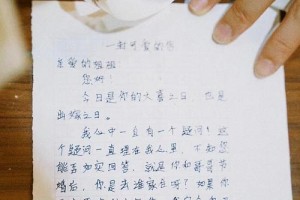 一封可爱的信
亲爱的姐姐
您好！
今日是您的大喜之日，也是
出嫁之日。
我心中一直有一个疑问！这
个疑问一直埋在我心里，不知您
能否如实回答，就是你和哥哥节
婚后，你是去谁家住呀？如果你